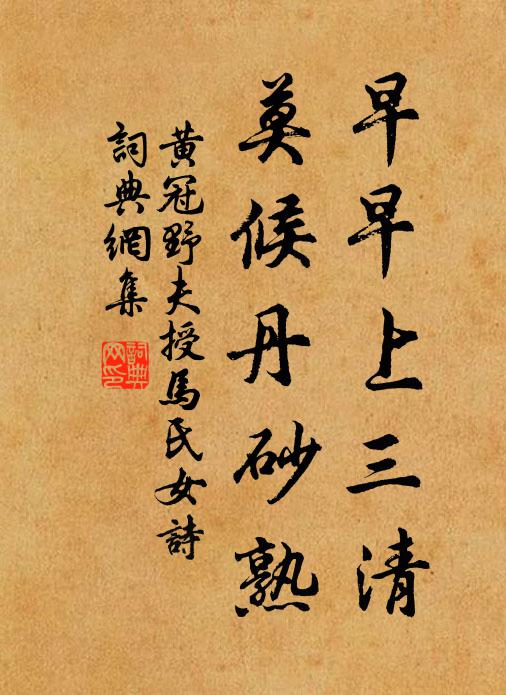 早早上三清
莫候丹砂熟
黃冠野夫授馬氏女詩
詞典網集
詞典網印